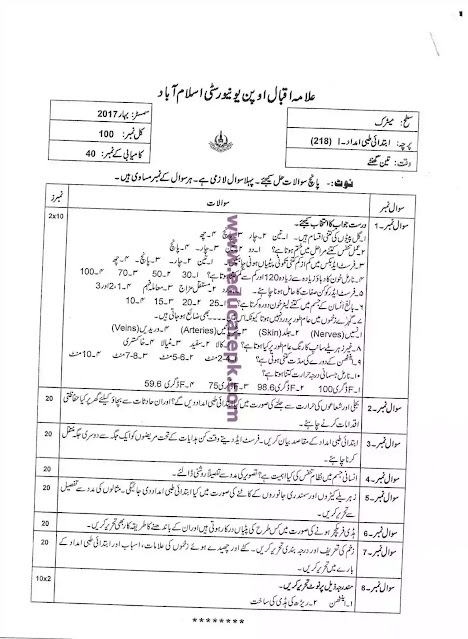 علامہ اقبال اوپن یونیورسٹی اسلام آباد
سطح: میٹرک
سمسٹر: بہار 2017
پرچہ: ابتدائی طبی امداد۔I (218)
کل نمبر: 100
وقت: تین گھنٹے
کامیابی کے نمبر: 40
نوٹ:۔ پانچ سوالات حل کیجئے۔ پہلا سوال لازمی ہے۔ ہر سوال کے نمبر مساوی ہیں۔
سوال نمبر سوالات نمبرز
سوال نمبر۔1 درست جواب کا انتخاب کیجئے۔ 2x10
۱۔ گل پٹیوں کی کتنی اقسام ہیں۔ ۱۔ تین ۲۔ چار ۳۔ پانچ ۴۔ چھ
۲۔ عمل تنفس کتنے مراحل میں ختم ہوتا ہے؟ ۱۔ دو ۲۔ تین ۳۔ چار ۴۔ پانچ
۳۔ فرسٹ ایڈ بکس میں کم از کم کتنی تکونی پٹیاں ہونی چاہیں۔ ۱۔ تین ۲۔ چار ۳۔ پانچ ۴۔ چھ
۴۔ نارمل خون کا دباؤ زیادہ سے زیادہ 120 اور کم سے کم کتنا ہوتا ہے؟ ۱۔ 30 ۲۔ 50 ۳۔ 70 ۴۔ 100
۵۔ فرسٹ ایڈر کو کن صفات کا حامل ہونا چاہئے۔ ۲۔ مستقل مزاج ۳۔ معاملہ فہم ۴۔ 1، 2 اور 3
۶۔ بالغ انسان کے جسم میں کتنے لیٹر خون دورہ کرتا ہے؟ ۱۔ 25 ۲۔ 20 ۳۔ 15 ۴۔
۷۔ گہرے زخموں میں عام طور پر درد نہیں ہوتا کیونکہ اس میں ضائع ہو جاتی ہیں۔
انسیں (Nerves) ۲۔ جلد (Skin) ۳۔ (Arteries) ۴۔ وریدیں (Veins)
۸۔ غیر زہریلے سانپ کا رنگ عام طور پر کیا ہوتا ہے؟ کالا ۲۔ سفید ۳۔ مٹیالا ۴۔ خاکستری
۹۔ اینٹھن کے دورے کی مدت کتنی ہوتی ہے؟ ۲۔ 5-6 منٹ ۳۔ 7-8 منٹ ۴۔ 10 منٹ
۱۰۔ نارمل جسمانی درجہ حرارت کتنا ہوتا ہے؟
۱۔ F ڈگری 100 ۲۔ F ڈگری 98.6 ۳۔ F ڈگری 75 ۴۔ F ڈگری 59.6
سوال نمبر۔2 بجلی اور شعاعوں کی حرارت سے جلنے کی صورت میں کیا ابتدائی طبی امداد دیں گے؟ اور ان حادثات سے بچاؤ کیلئے گھر پر کیا حفاظتی 20
اقدامات کرنے چاہئے۔
سوال نمبر۔3 ابتدائی طبی امداد کے مقاصد بیان کریں۔ فرسٹ ایڈ دیتے وقت کن ہدایات کے تحت مریضوں کو ایک جگہ سے دوسری جگہ منتقل 20
کرنا چاہئے۔
سوال نمبر۔4 انسانی جسم میں نظام تنفس کی کیا اہمیت ہے؟ تصویر کی مدد سے تفصیلاً روشنی ڈالئے۔ 20
سوال نمبر۔5 زہریلے کیڑوں اور سمندری جانوروں کے کاٹنے کی صورت میں کیا ابتدائی طبی امداد دی جائیگی۔ مثالوں کی مدد سے تفصیل 20
سے تحریر کریں۔
سوال نمبر۔6 ہڈی فریکچر ہونے کی صورت میں کس طرح کی پٹیاں درکار ہوتی ہیں اور ان کے باندھنے کا طریقہ کار بھی تحریر کریں۔ 20
سوال نمبر۔7 زخم کی تعریف اور درجہ بندی تحریر کریں۔ کٹے اور چھیدے ہوئے زخموں کی علامات، اسباب اور ابتدائی طبی امداد کے 20
بارے میں تحریر کریں۔
سوال نمبر۔8 مندرجہ ذیل پر نوٹ تحریر کریں۔ 10x2
۱۔ اینٹھن ۲۔ ریڑھ کی ہڈی کی ساخت
********
www.educatepk.com